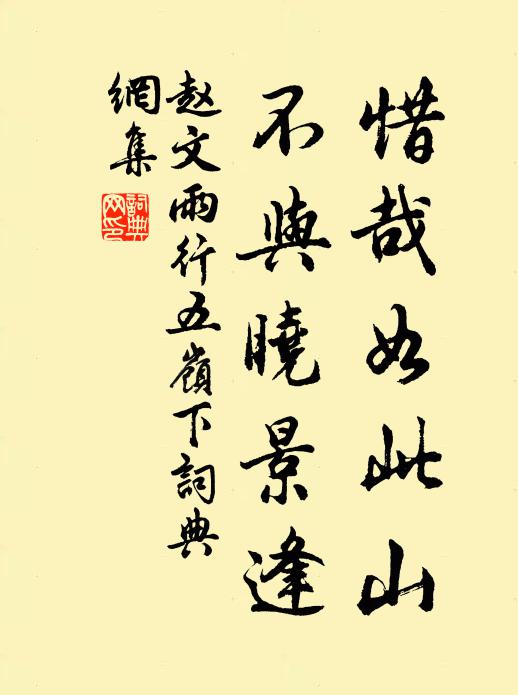 惜哉如此山
不與曉景逢
赵文雨行五嶺下詞典
網集
詞典
网印